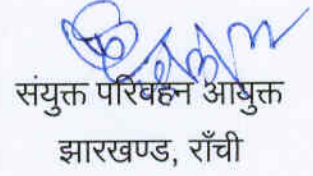 संयुक्त परिवहन आयुक्त
झारखण्ड, राँची